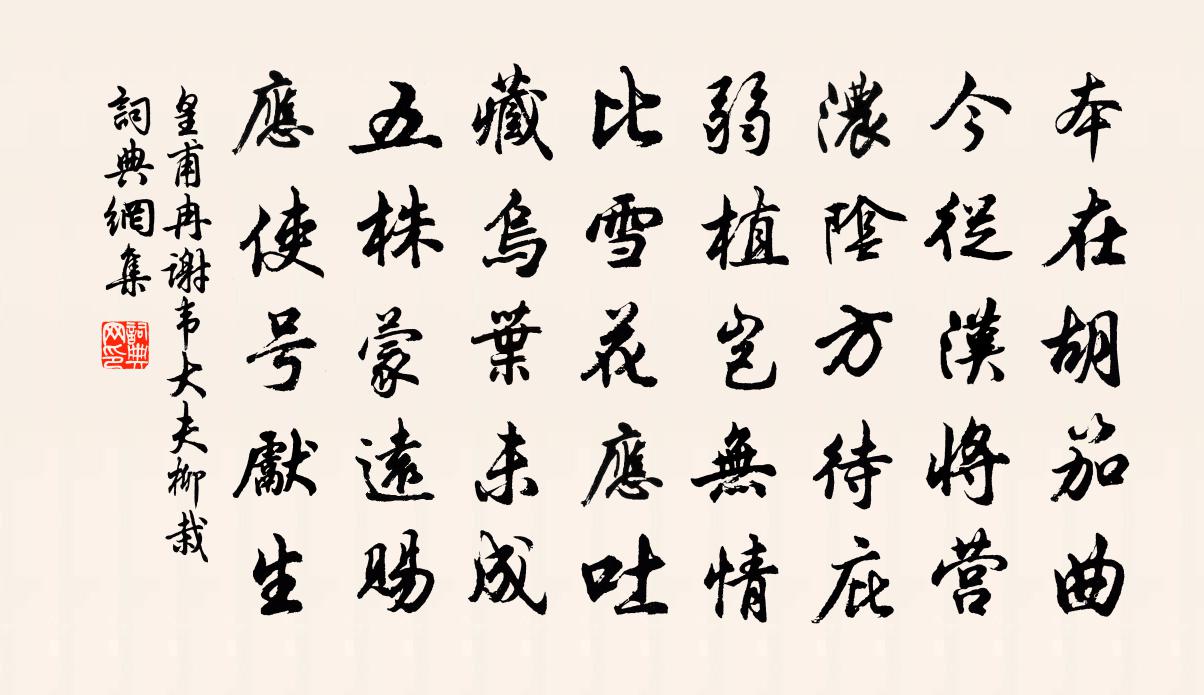 本在胡笳曲
今從漢將营
濃陰方待庇
弱植岂無情
比雪花應吐
藏烏葉未成
五株蒙遠賜
應使号獻生
皇甫冉谢韦大夫柳栽
詞典網集
詞典网印